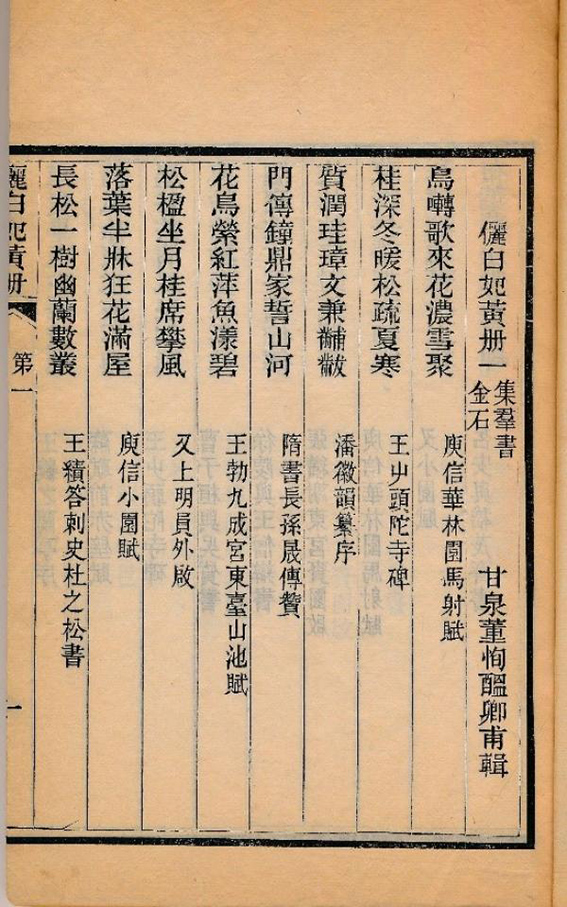 儷白妃黃册一 集羣書金石 甘泉董恂醞卿甫輯
鳥囀歌來花濃雪聚 庾信華林園馬射賦
桂深冬暖松疏夏寒 王屮頭陀寺碑
質潤珪璋文兼黼黻 潘徽韻纂序
門傳鐘鼎家誓山河 隋書長孫晟傳贊
花鳥縈紅萍魚漾碧 王勃九成宮東臺山池賦
松楹坐月桂席攀風 又上明員外啟
落葉半牀狂花滿屋 庾信小園賦
長松一樹幽蘭數叢 王績答刺史杜之松書
儷白妃黃册 第一 一